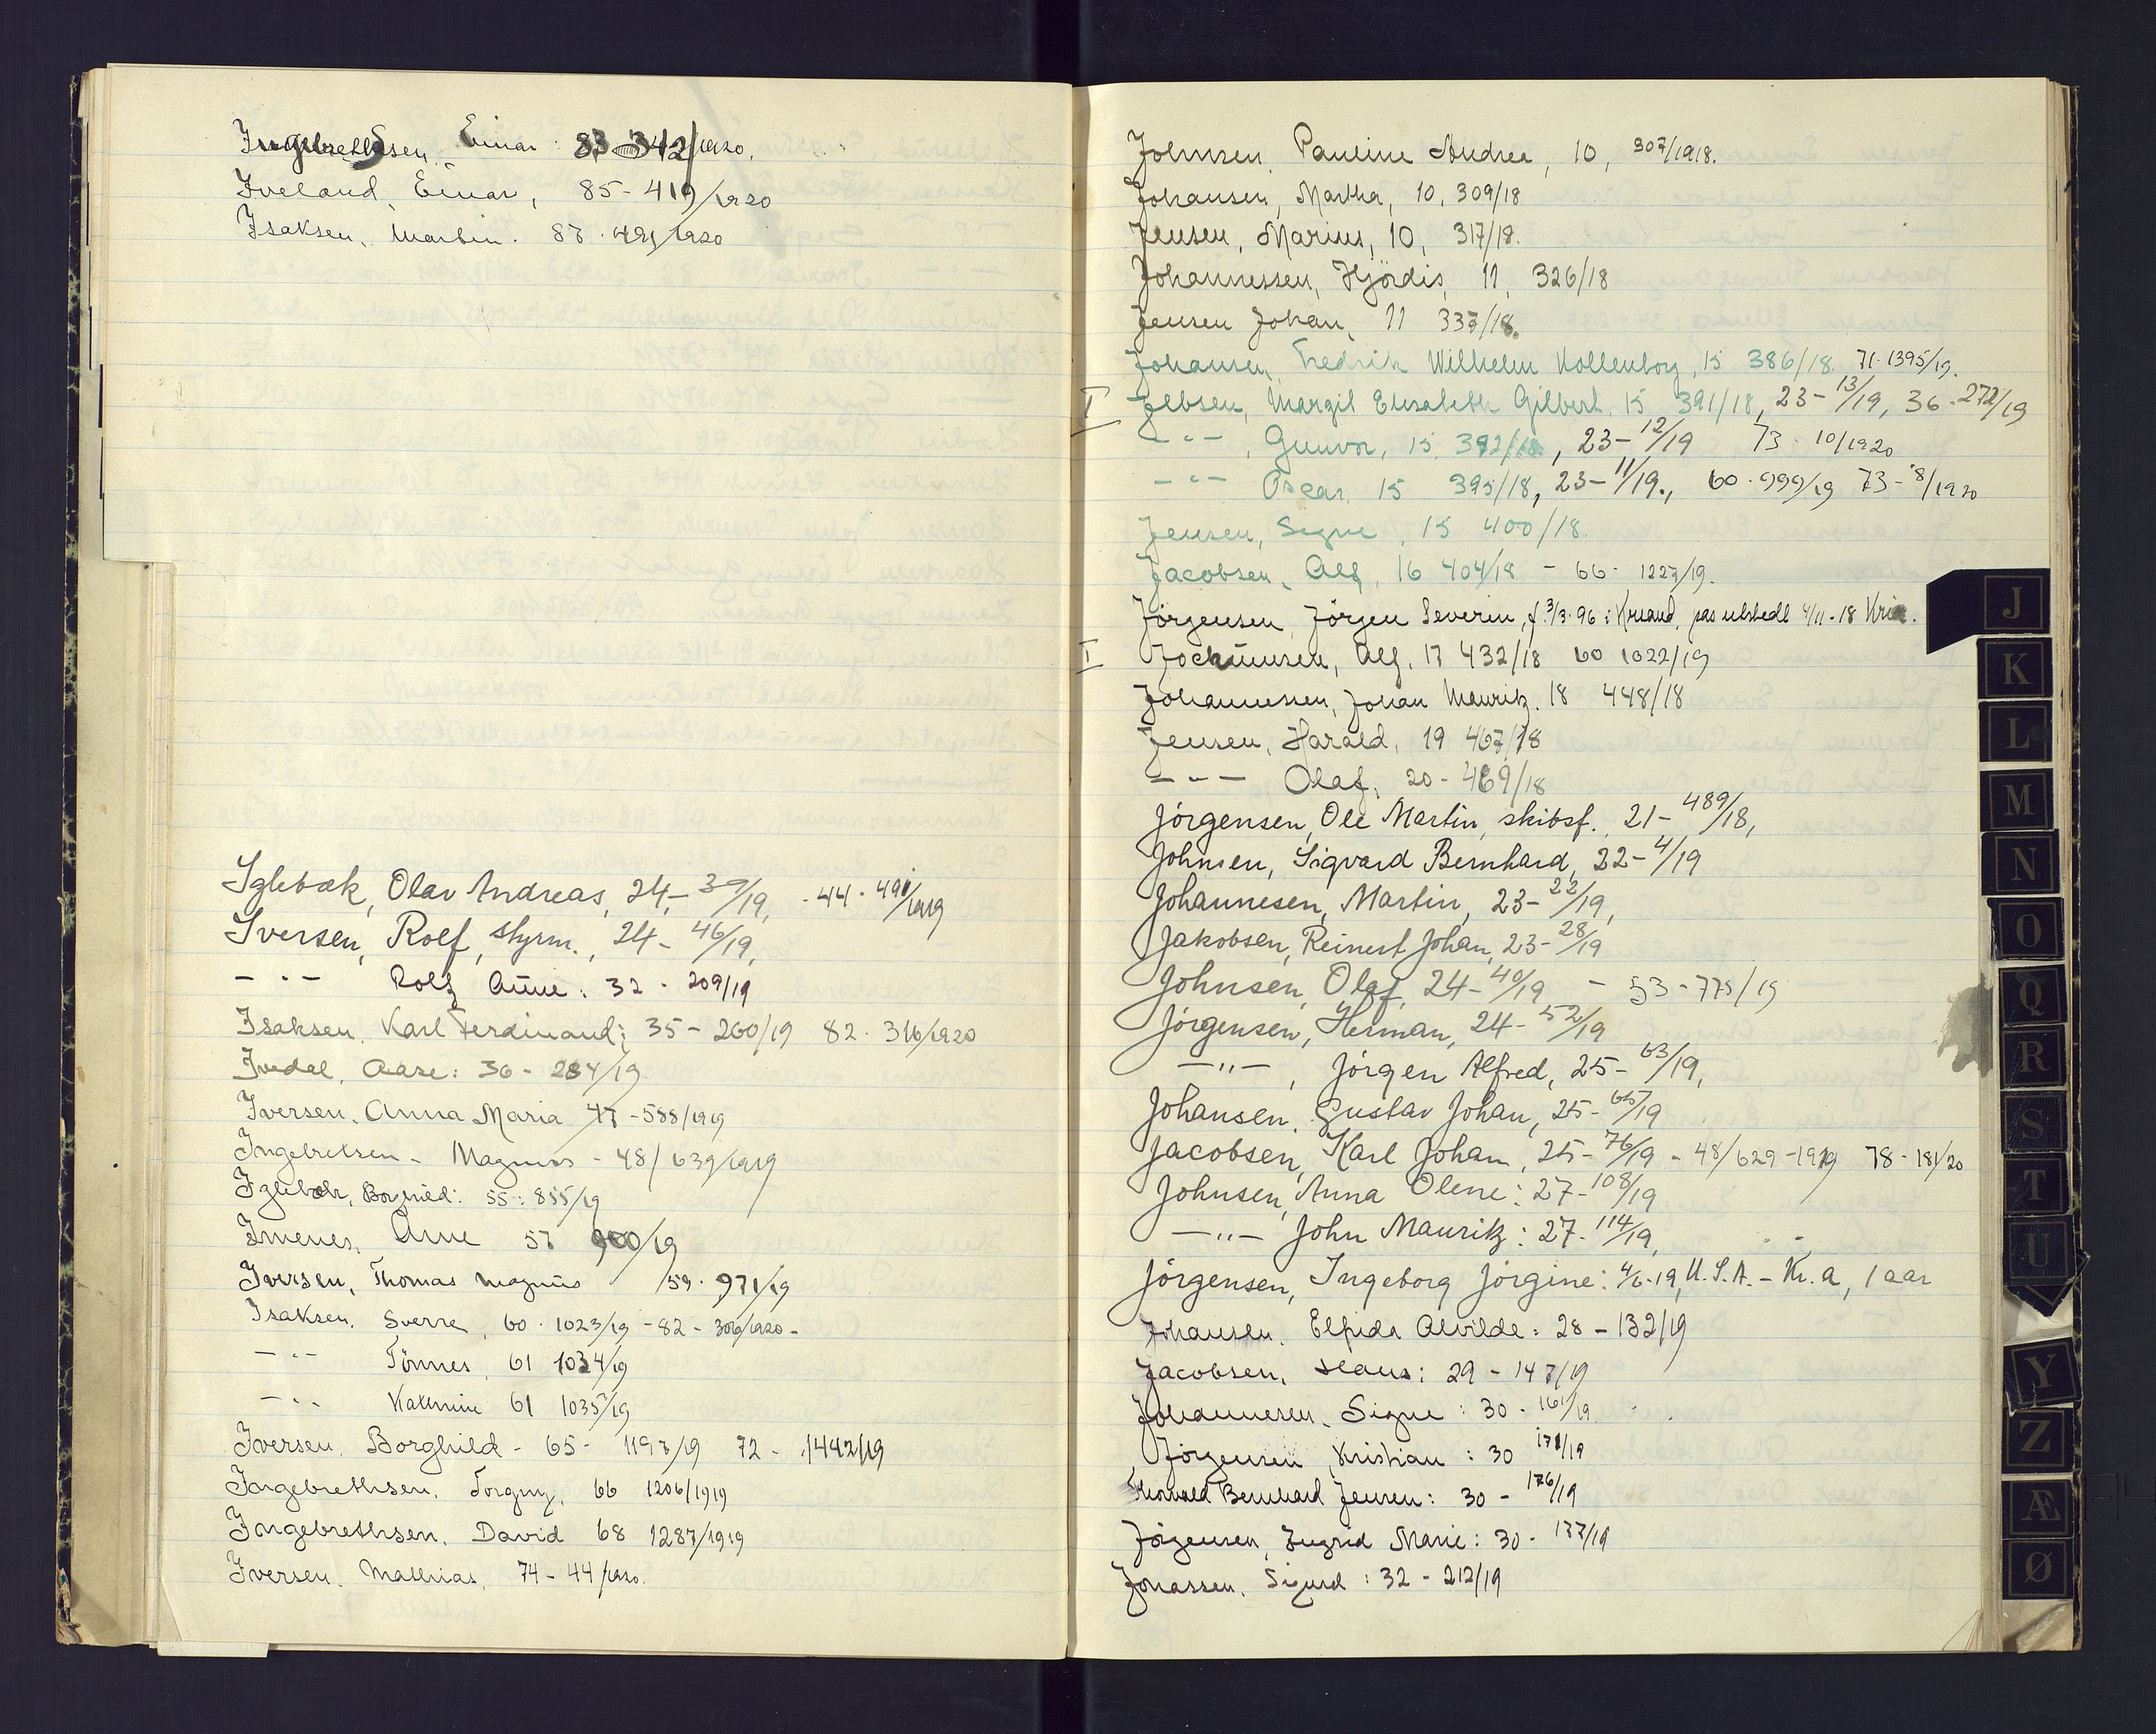 Ingebrethsen Einar: 83 342/1920.
Iveland, Einar, 85 - 419/1920
Isaksen, Martin. 87 . 491/1920
Iglebæk, Olav Andreas, 24 - 39/19, - 44 . 491/1919
Iversen, Rolf, styrm., 24 - 46/19,
- " - Rolf Arne: 32 . 209/19
Isaksen. Karl Ferdinand; 35 - 260/19 82 . 316/1920
Ivedal, Aase: 36 - 284/19
Iversen. Anna Maria 47 - 588/1919
Ingebretsen - Magnus - 48/639/1919
Iglebæk, Borghild: 55: 855/19
Imenes, Arne 57 900/19
Iversen, Thomas Magnus 59 . 971/19
Isaksen. Sverre, 60 . 1023/19 - 82 - 306/1920 -
- " - Tönnes, 61 1034/19
- " - Kathrine 61 1035/19
Iversen. Borghild - 65 - 1197/19 72 - 1442/19
Ingebrethsen. Torgny, 66 1206/1919
Ingebrethsen. David 68 1287/1919
Iversen. Mathias, 74 - 44/1920.
Johnsen, Pauline Andrea, 10, 307/1918.
Johansen, Martha, 10, 309/18
Jensen, Marius, 10, 317/18.
Johannessen, Hjördis, 11, 326/18
Jensen Johan, 11 337/18.
Johansen, Fredrik Wilhelm Kollenborg, 15 386/18. 71 - 1395/19.
I Jebsen, Margit Elisabeth Gilbert, 15 391/18, 23 - 13/19, 36 - 272/19
- " - , Gunvor, 15, 392/18, 23 - 12/19 73 . 10/1920
- " - Oscar, 15 395/18, 23 - 11/19., 60 . 999/19 73 - 8/1920
Jensen, Signe, 15 400/18.
Jacobsen, Alf, 16 404/18 - 66 - 1227/19.
Jörgensen, Jörgen Severin, f. 3/3-96 i Krsand, pas utstedt 4/11-18 Kria.
I Jochumsen, Alf, 17 432/18 60 1022/19
Johannessen, Johan Mauritz. 18 448/18
Jensen, Harald, 19 467/18
- " - Olaf, 20 - 469/18
Jörgensen, Ole Martin, skibsf., 21 - 489/18,
Johnsen, Sigvard Bernhard, 22 - 4/19
Johannesen, Martin, 23 - 22/19,
Jakobsen, Reinert Johan, 23 - 28/19
Johnsen, Olaf, 24 - 40/19 - 53 - 775/19
Jörgensen, Herman, 24 - 52/19
- " - , Jörgen Alfred, 25 - 63/19,
Johansen, Gustav Johan, 25 - 65/19
Jacobsen, Karl Johan, 25 - 76/19 - 48/629 - 1919 78 - 181/20
Johnsen, Anna Olene: 27 - 108/19
- " - John Mauritz: 27 - 114/19,
Jörgensen, Ingeborg Jörgine: 4/6-19, U.S.A. - Kr.a, 1 aar
Johansen. Elfrida Alvilde: 28 - 132/19
Jacobsen, Hans: 29 - 147/19
Johannesen, Signe: 30 - 161/19
Jörgensen, Kristian: 30 171/19
Thorvald Bernhard Jensen: 30 - 176/19
Jörgensen, Ingrid Marie: 30 - 177/19
Jonassen, Sigurd: 32 - 212/19
J
K
L
M
N
O
Q
R
S
T
U
Y
Z
Æ
Ø